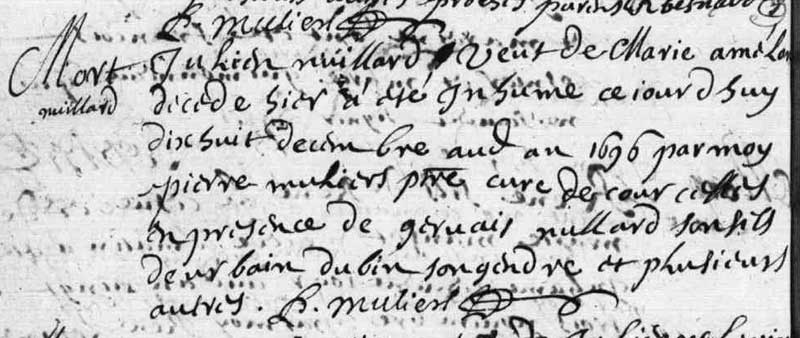 proches parens
P. muliers
Mort Julien nuillard Veuf de Marie amelon
nuillard decede hier a été Inhume ce jourdhuy
dixhuit decembre aud an 1696 par moy
pierre muliers ptre cure de courcelles
En presence de gervais nullard son fils
de urbain dubin son gendre et plusieurs
autres. P. muliers